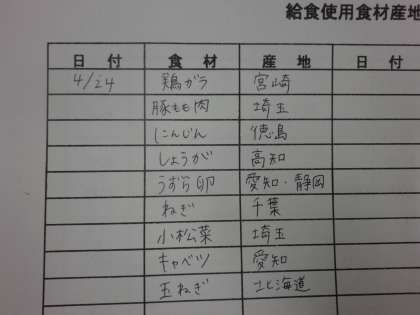 給食使用食材産地
日 付 食 材 産 地 日 付
4/24 鶏ガラ 宮崎
豚もも肉 埼玉
にんじん 徳島
しょうが 高知
うずら卵 愛知・静岡
ねぎ 千葉
小松菜 埼玉
キャベツ 愛知
玉ねぎ 北海道